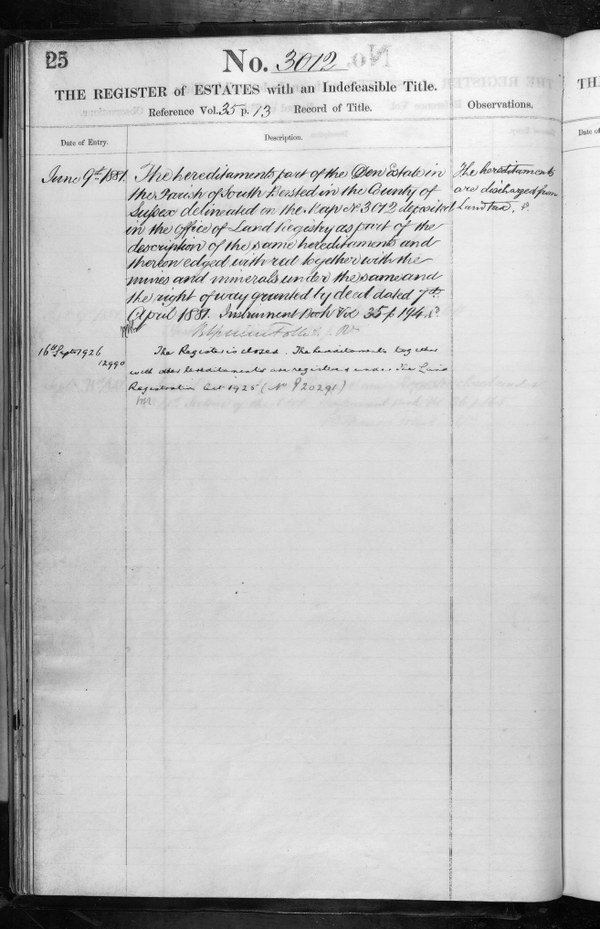 25
No. 3012
THE REGISTER of ESTATES with an Indefeasible Title.
Reference Vol. 35 p. 13 Record of Title.
Observations.
Date of Entry.
Description.
June 9th 1881.
The hereditaments part of the Estate in
the Parish of South Bersted in the County of
Sussex delineated on the Map No 3012 deposited
in the Office of Land Registry as part of the
description of the same hereditaments and
thereon edged with red together with the
mines and minerals under the same and
the right of way granted by deed dated 7th
April 1881. Instrument Book Vol 35 p 194
The hereditaments
are discharged from
Land tax.
16th Sept 1926
12990
The Register is closed. The hereditaments together
with other hereditaments are registered under the Land
Registration Act 1925 (No P 20291)
THE
Date of